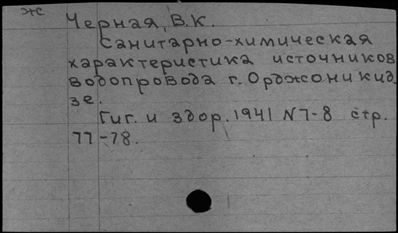 ж
Черная, В.К.
Санитарно-химическая
характеристика источников
водопровода г. Орджоникид
зе.
Гиг. и здор. 1941 N7-8 стр.
77-78.